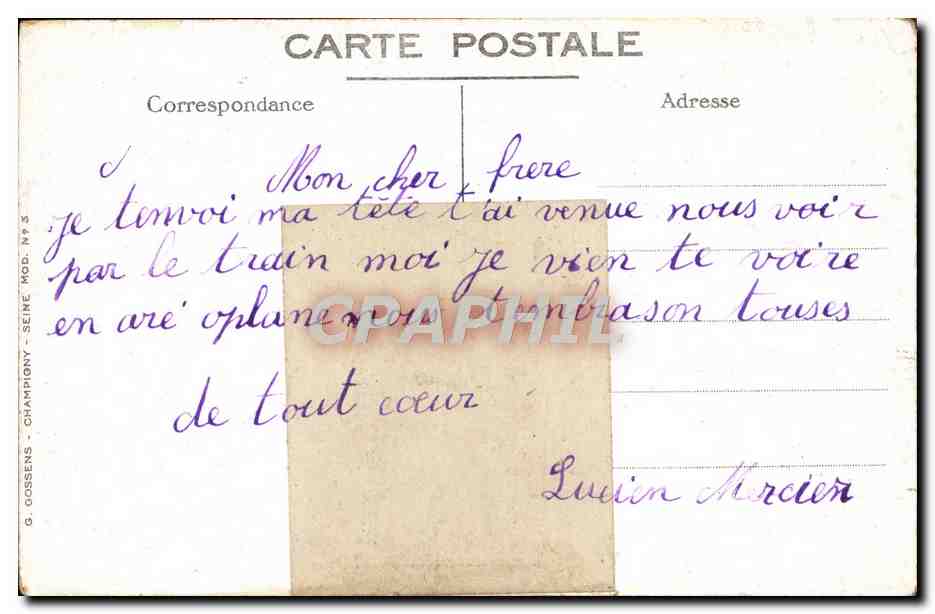 CARTE POSTALE
Correspondance
Adresse
Mon cher frere
je tenvoi ma tété t'ai venue nous voir
par le train moi je vien te voire
en aré oplane nous tembrason touses
de tout cœur
Lucien Mercier
G. GOSSENS - CHAMPIGNY - SEINE MOD. Nº 3
CPAPHIL